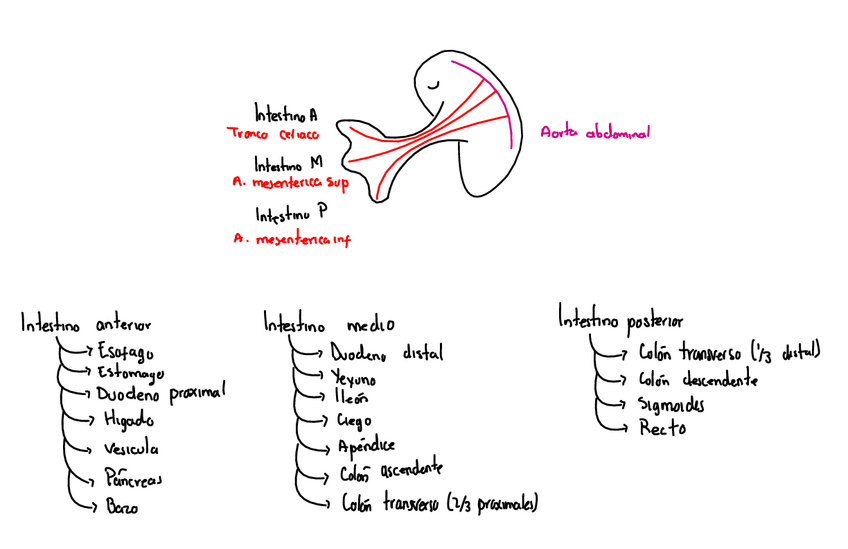 Intestino A
Tronco celiaco
Intestino M
A. mesenterica sup
Intestino P
A. mesenterica inf
Aorta abdominal
Intestino anterior
Esofago
Estomago
Duodeno proximal
Higado
Vesicula
Páncreas
Bazo
Intestino medio
Duodeno distal
Yeyuno
Ileón
Ciego
Apéndice
Colón ascendente
Colón transverso (2/3 proximales)
Intestino posterior
Colón transverso (1/3 distal)
Colón descendente
Sigmoides
Recto